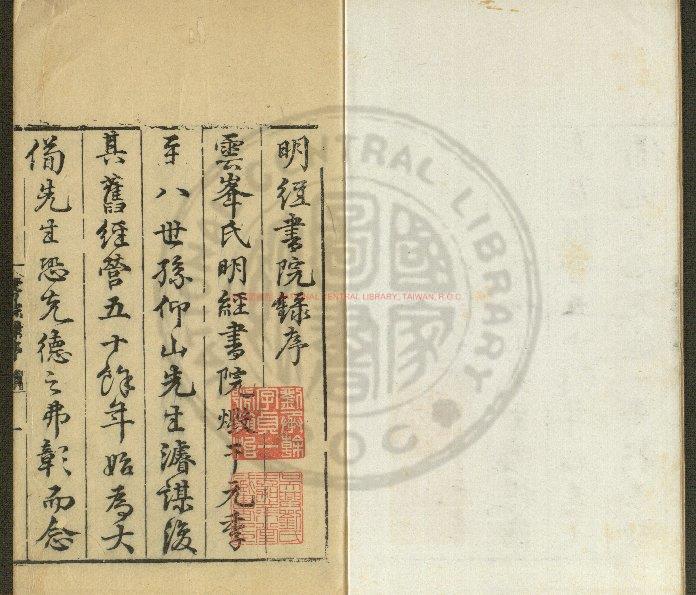 明經書院錄序
雲峯氏明經書院燬于元季
至八世孫仰山先生濬謀復
其舊經營五十餘年始為大
備先生恐先德之弗彰而念
CENTRAL LIBRARY, TAIWAN, R.O.C.
CENTRAL LIBRARY
國家圖書